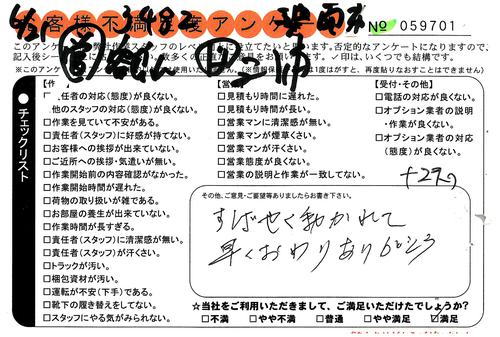 お客様不満足度アンケート
No 059701
このアンケートは弊社作業スタッフのレベル向上に役立てたいと思います。否定的なアンケートになりますので、
【営
【受付・その他】
任者の対応(態度)が良くない。
他のスタッフの対応(態度)が良くない。
□作業を見ていて安心がある。
□責任者(スタッフ)に好感が持てない。
□お客様への挨拶が出来ていない。
□ご近所への挨拶・気遣いが無い。
□作業開始前の内容確認がなかった。
□作業開始時間が遅れた。
□荷物の取り扱いが雑である。
□お部屋の養生が出来ていない。
□作業時間が長すぎる。
□責任者(スタッフ)に清潔感が無い。
□責任者(スタッフ)が汗くさい。
□トラックが汚い。
□梱包資材が汚い。
□運転が不安(下手)である。
□靴下の履き替えをしてない。
□スタッフにやる気がみられない。
□見積もり時間に遅れた。
□見積もり時間が長い。
□営業マンに清潔感が無い。
□営業マンが煙草くさい。
□営業マンが汗くさい。
□営業態度が良くない。
□営業の説明と作業が一致してない。
□電話の対応が良くない。
□オプション業者の説明
・作業が良くない。
□オプション業者の対応
(態度)が良くない。
チェックリスト
その他、ご意見・ご要望等ありましたらお書き下さい。
すばやく動かれて
早くおわりありがとう
☆当社をご利用いただきまして、ご満足いただけたでしょうか?
□不満 □やや不満 □普通 □やや満足 □満足